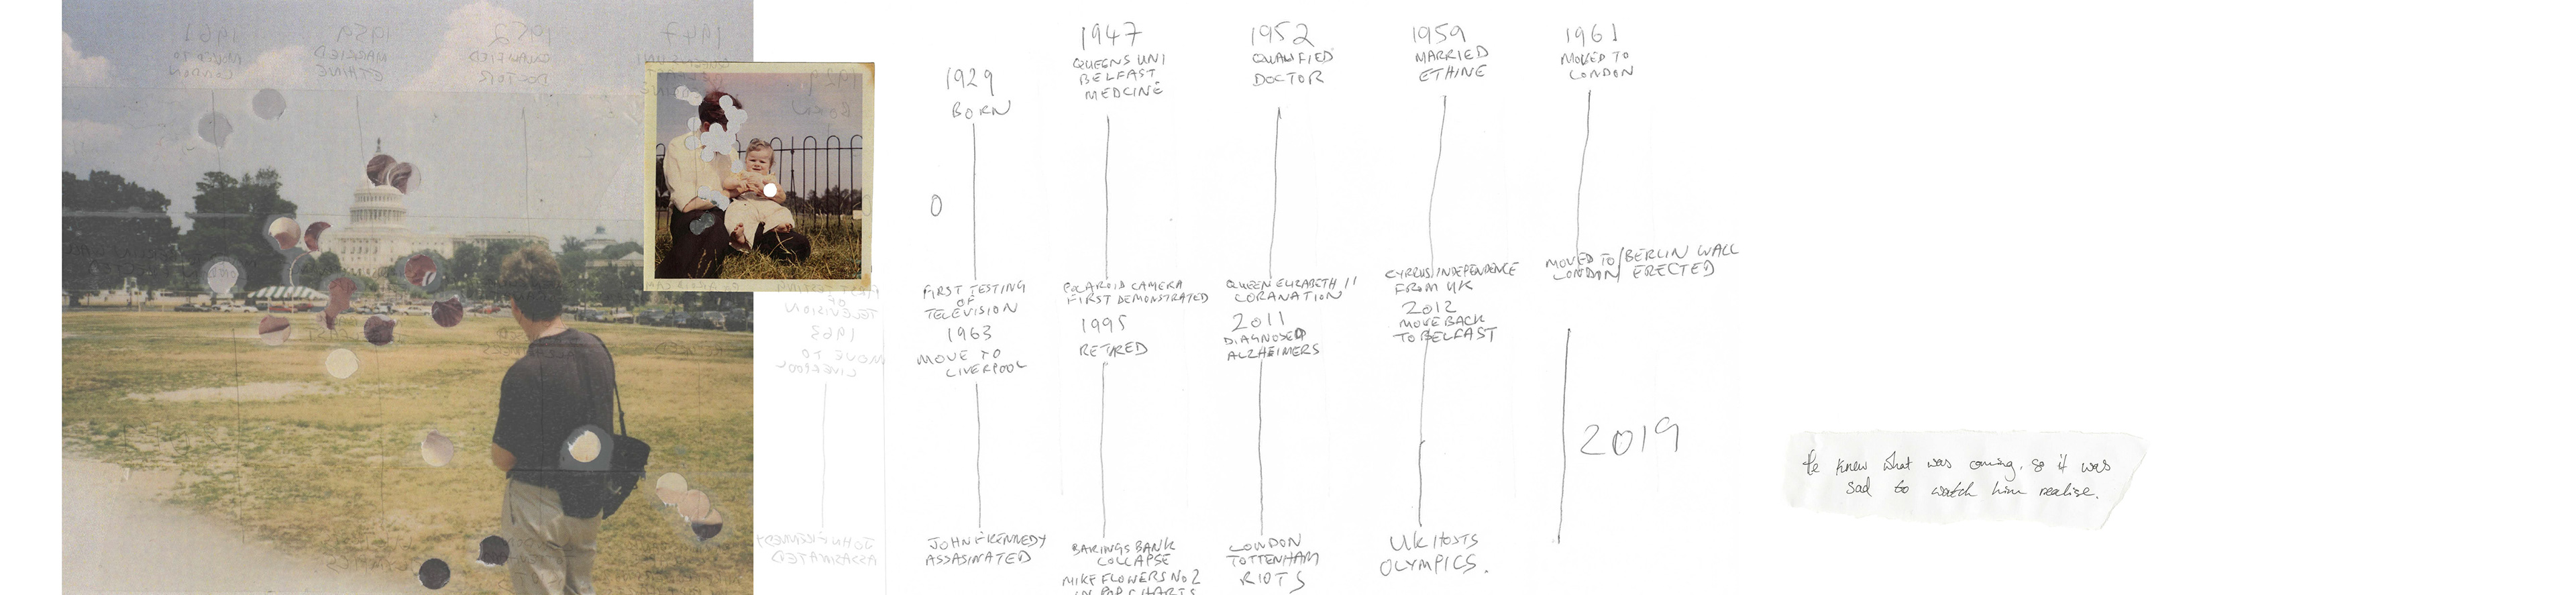 1929
BORN
0
FIRST TESTING
OF
TELEVISION
1963
MOVE TO
LIVERPOOL
JOHN F KENNEDY
ASSASINATED
1947
QUEENS UNI
BELFAST
MEDCINE
POLAROID CAMERA
FIRST DEMONSTRATED
1995
RETIRED
BARINGS BANK
COLLAPSE
MIKE FLOWERS No 2
IN POP CHARTS
1952
QUALIFIED
DOCTOR
QUEEN ELIZABETH II
CORANATION
2011
DIAGNOSED
ALZHEIMERS
LONDON
TOTTENHAM
RIOTS
1959
MARRIED
ETHINE
CYPRUS INDEPENDENCE
FROM UK
2012
MOVE BACK
TO BELFAST
UK HOSTS
OLYMPICS.
1961
MOVED TO
LONDON
MOVED TO/BERLIN WALL
LONDON/ERECTED
2019
He knew what was coming. so it was
sad to watch him realise.